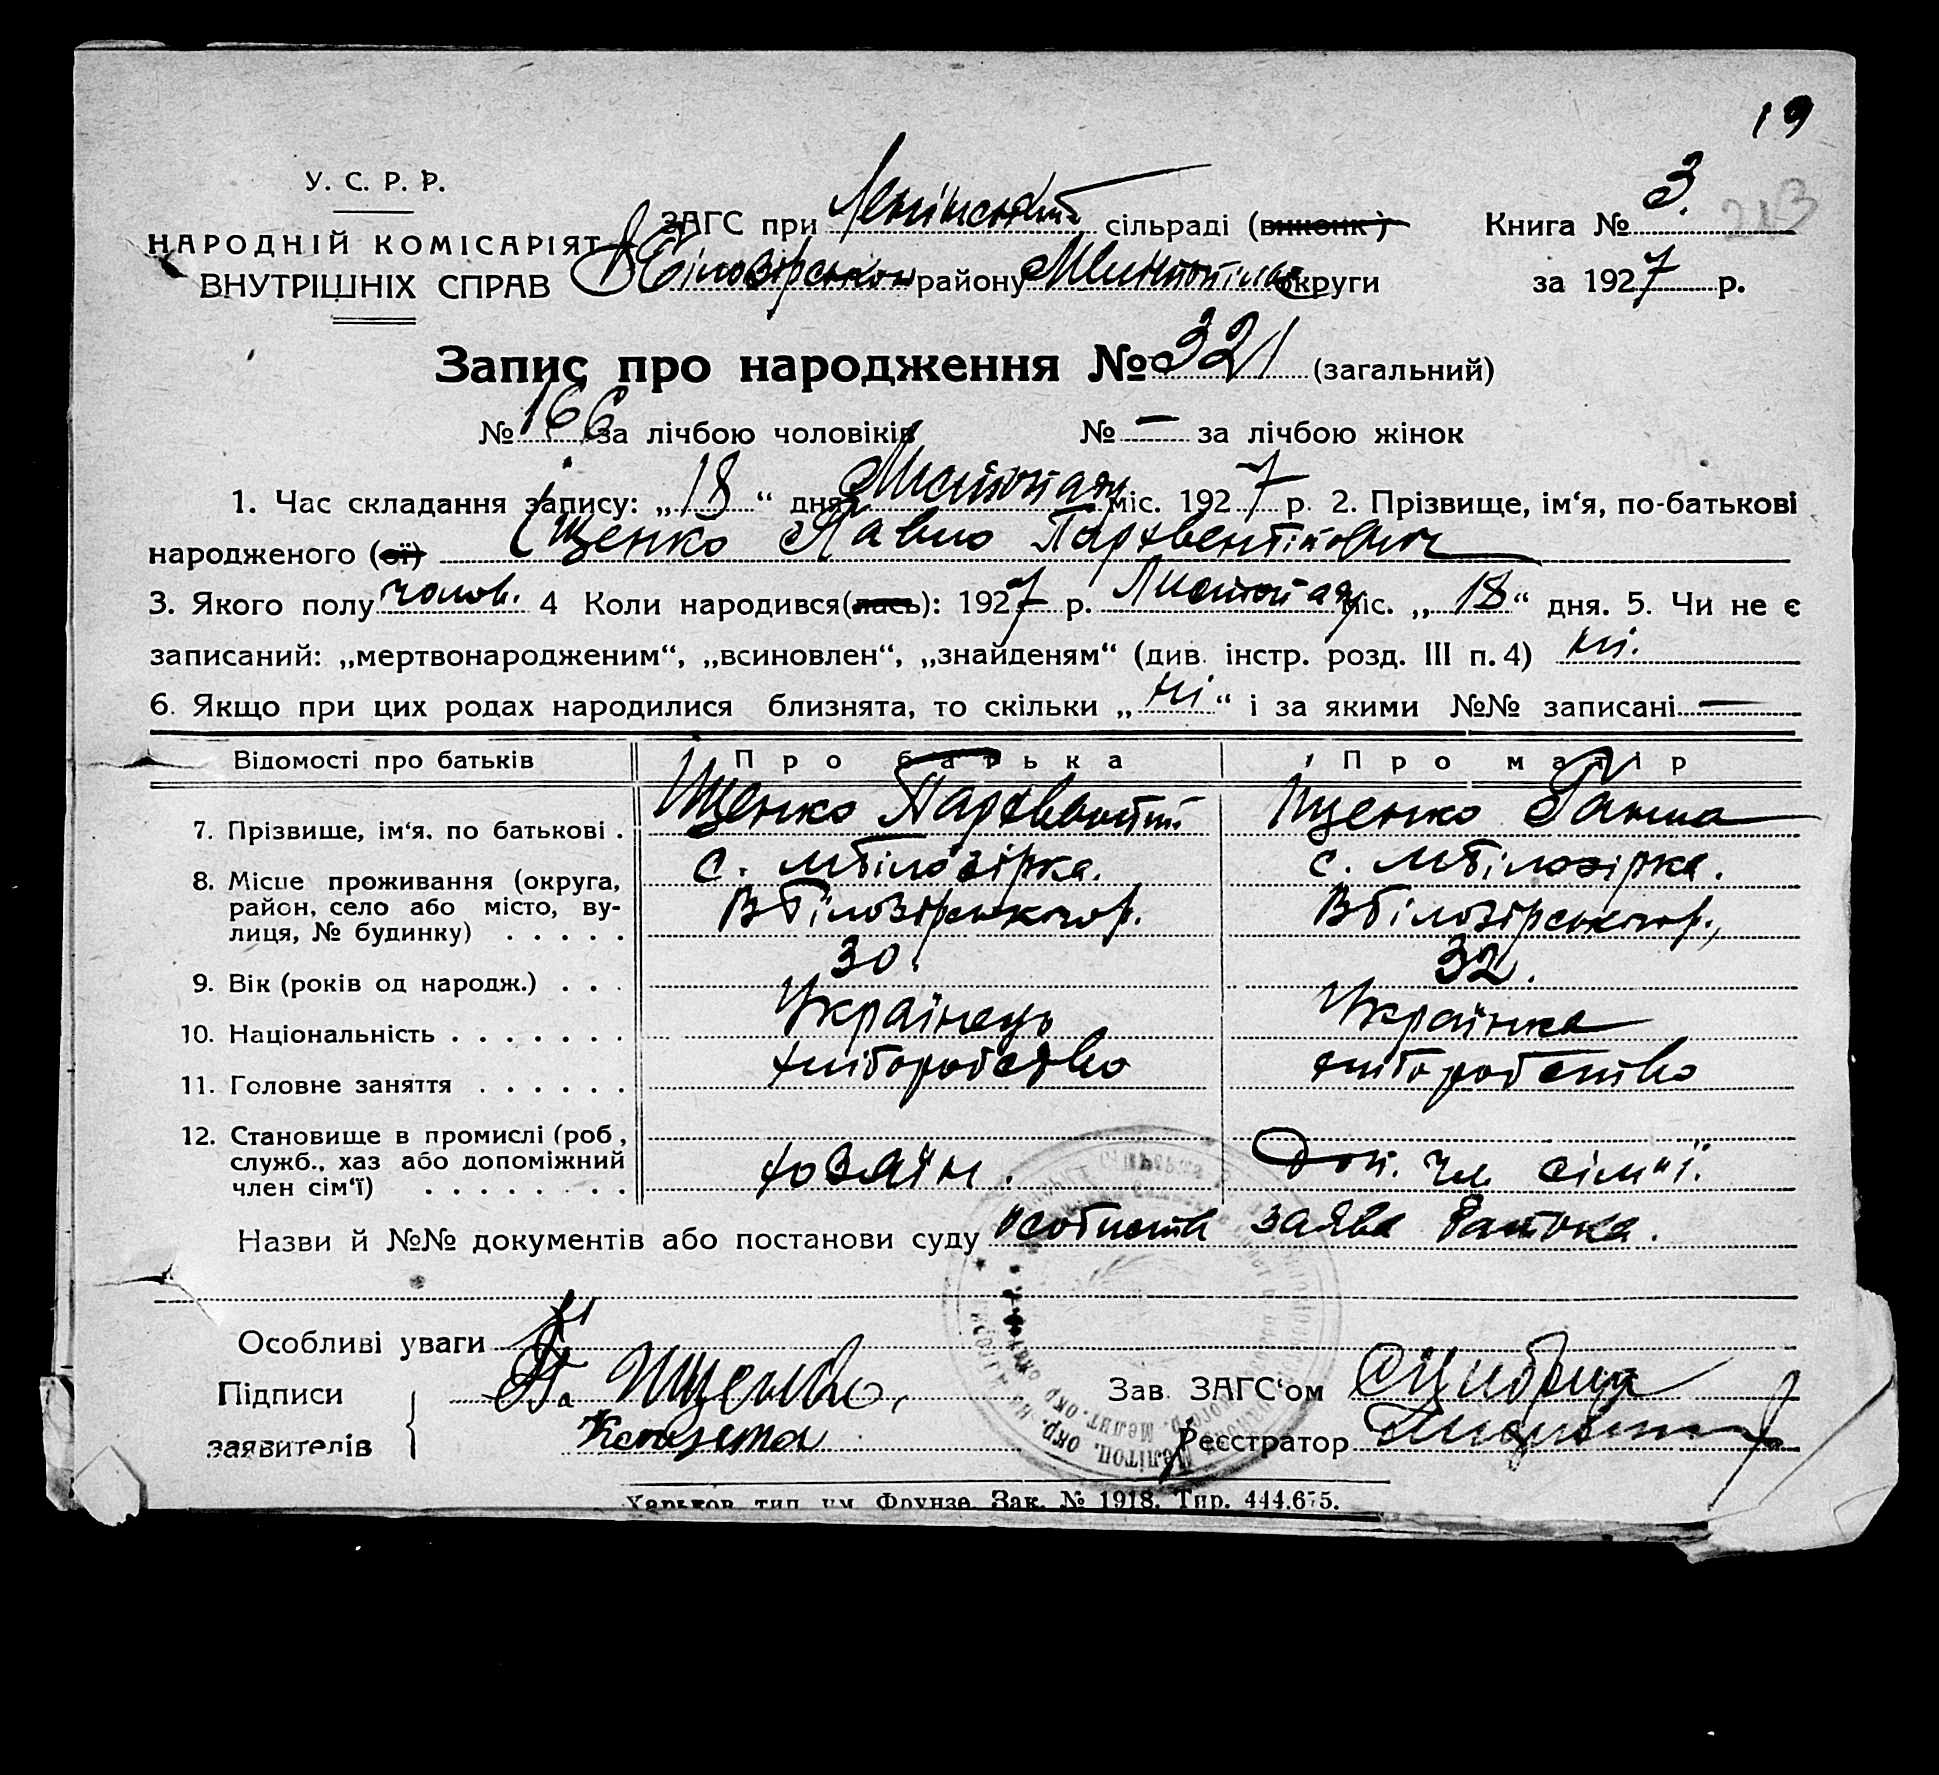 19
У. С. Р. Р.
НАРОДНІЙ КОМІСАРІЯТ
ВНУТРІШНІХ СПРАВ
ЗАГС при Ленінській сільраді (виконк)
Книга № 3. 213
району округи
за 1927 р.
Запис про народження № 321 (загальний)
№ 166 за лічбою чоловіків № — за лічбою жінок
1. Час складання запису: „18“ дня Листопаду міс. 1927 р. 2. Прізвище, ім‘я, по-батькові
народженого (ої) Іщенко Павло Пархвентійович
3. Якого полу чолов. 4 Коли народився(лась): 1927 р. Листопаду міс. „18“ дня. 5. Чи не є
записаний: „мертвонародженим“, „всиновлен“, „знайденям“ (див. інстр. розд. III п. 4) ні.
6. Якщо при цих родах народилися близнята, то скільки „ні“ і за якими №№ записані —
Відомості про батьків Про батька Про матір
7. Прізвище, ім‘я, по батькові . Іщенко Пархвентій. Іщенко Ганна
8. Місце проживання (округа, с. МБілозірка. с. МБілозірка.
район, село або місто, ву- ВБілозірськог р. ВБілозірськог р.,
лиця, № будинку) . . . . .
9. Вік (років од народж.) . . . 30. 32.
10. Національність . . . . . . . Українець Українка
11. Головне заняття . . . . . . хліборобство хліборобство
12. Становище в промислі (роб.,
служб., хаз або допоміжний
член сім‘ї) . . . . . . . . хозяїн. Доп. чл сім"ї.
Назви й №№ документів або постанови суду особиста заява батька.
Особливі уваги
Підписи Іщенко Зав. ЗАГС‘ом
заявителів Реєстратор
Харьков, тип. им. Фрунзе. Зак. № 1918. Тир. 444.675.